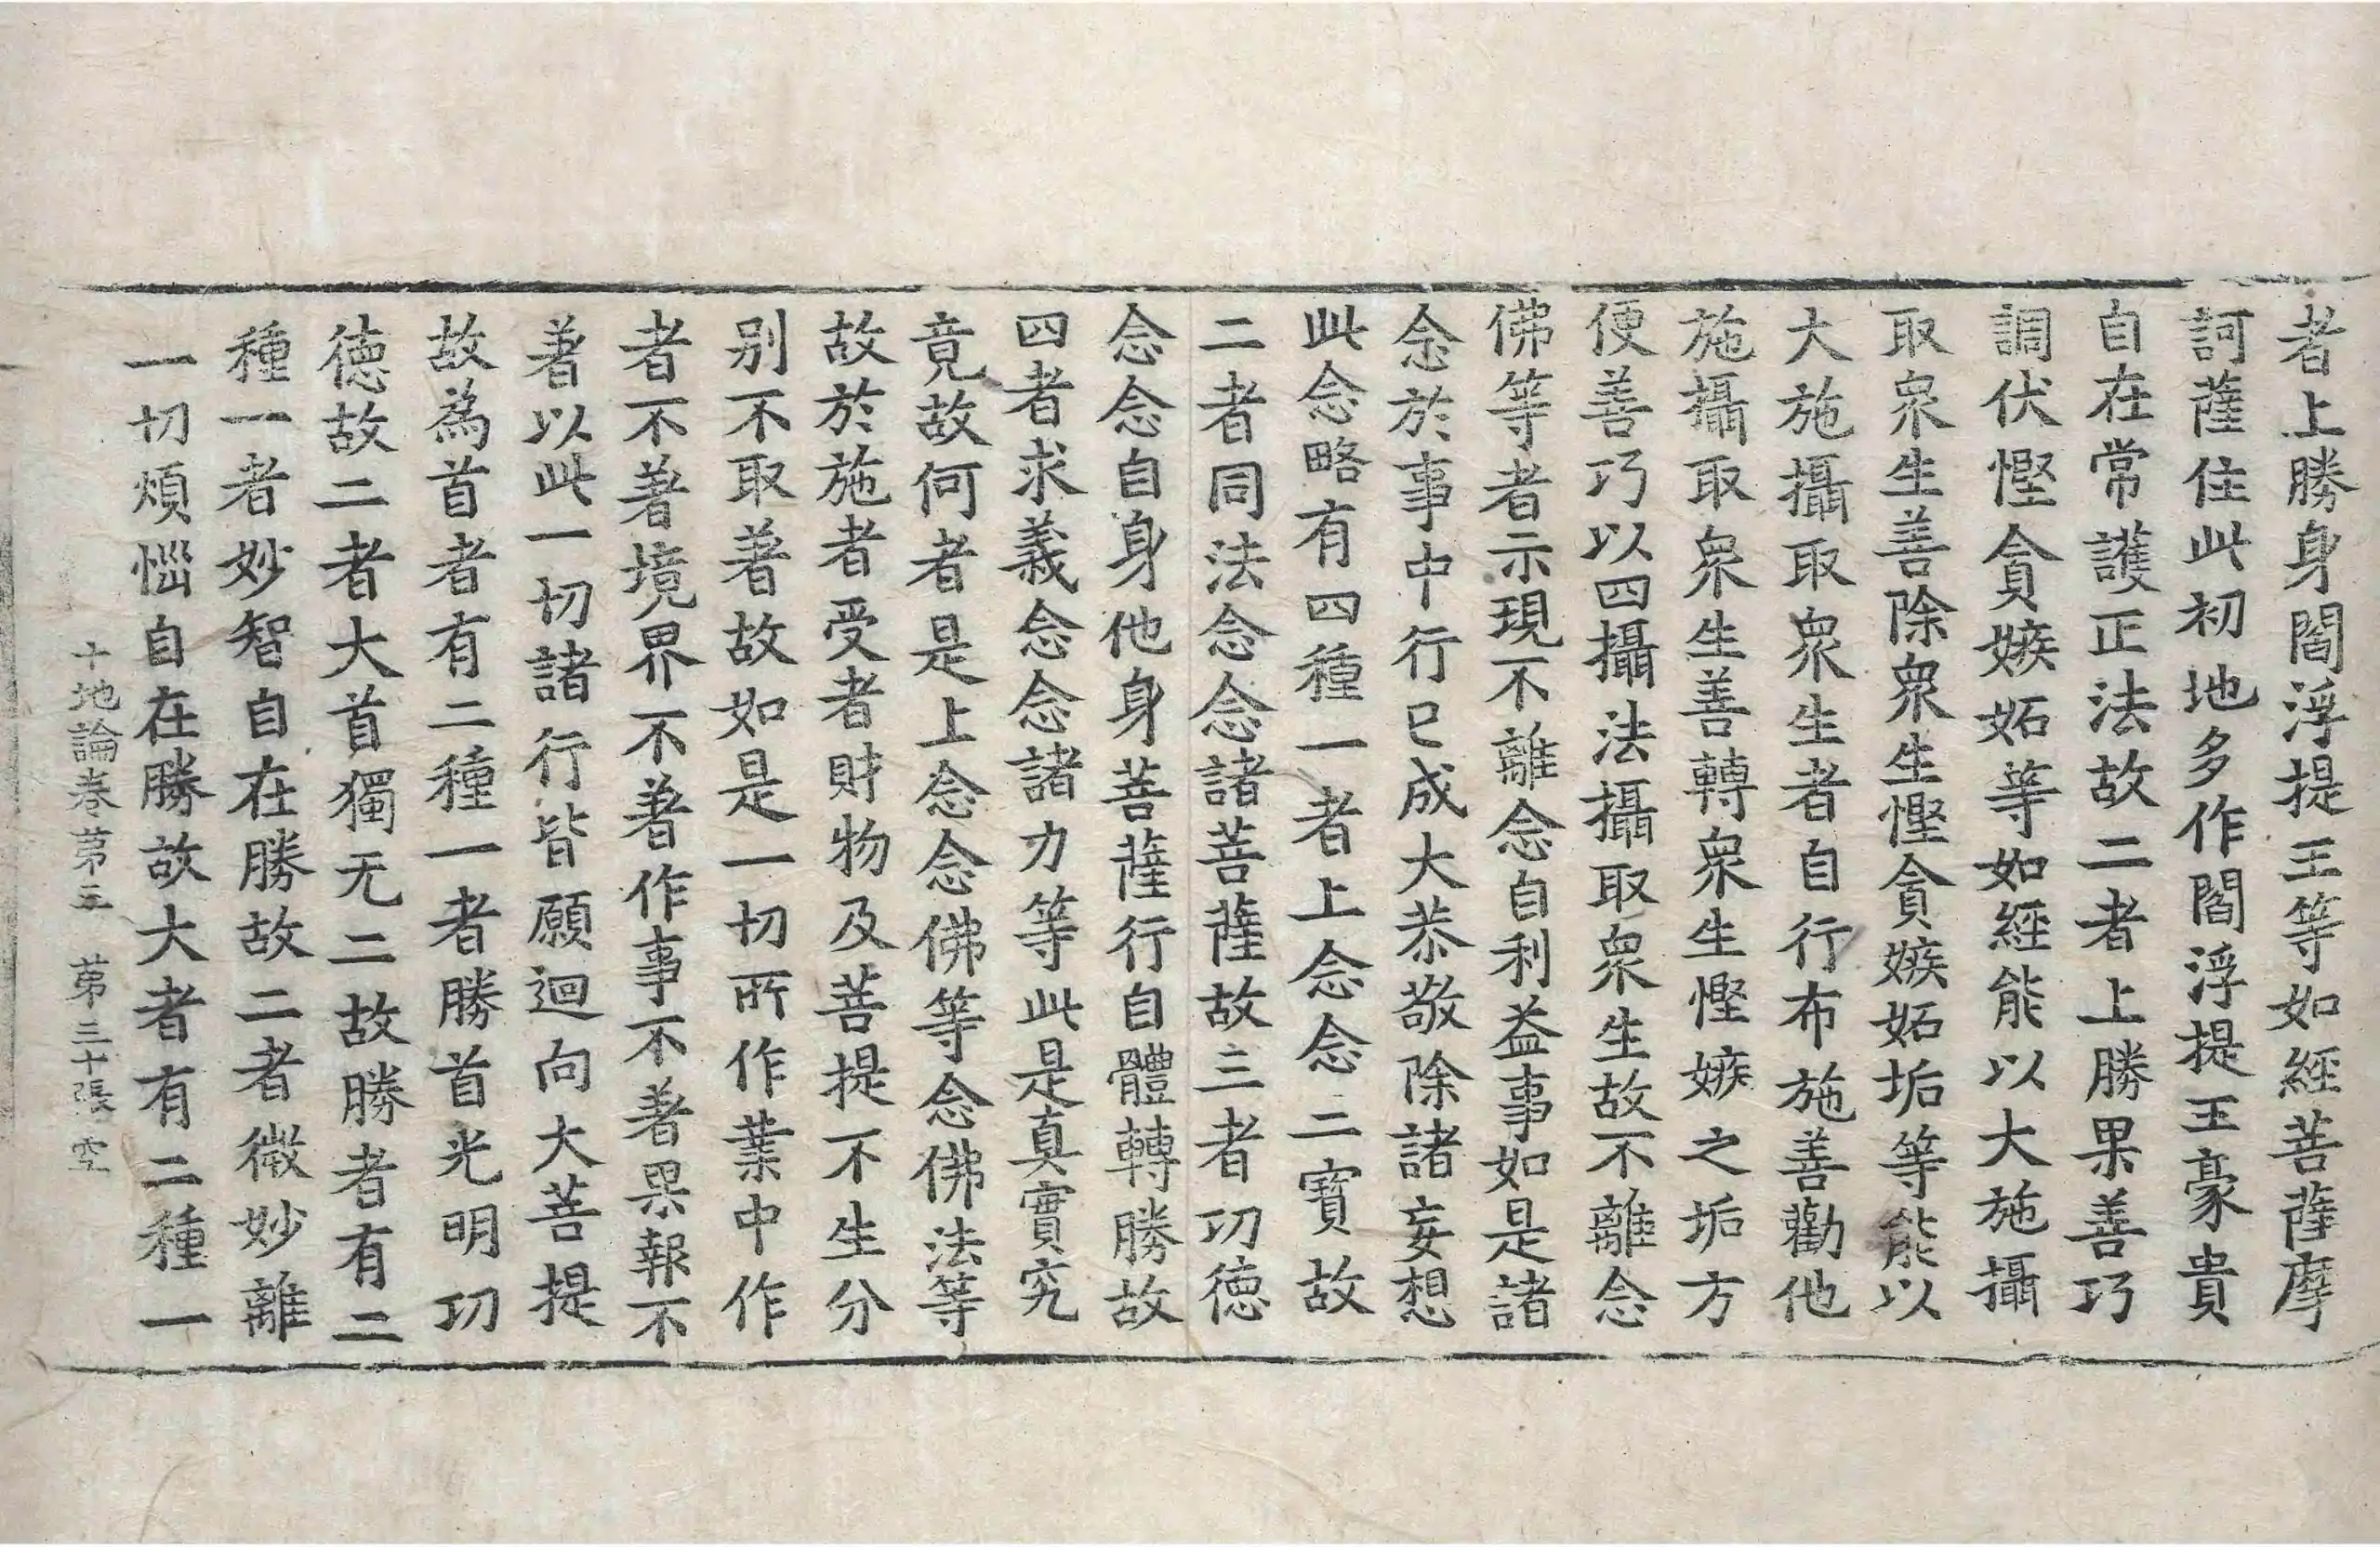 者上勝身閻浮提王等如經菩薩摩
訶薩住此初地多作閻浮提王豪貴
自在常護正法故二者上勝果善巧
調伏慳貪嫉妬等如經能以大施攝
取衆生善除衆生慳貪嫉妬垢等能以
大施攝取衆生者自行布施善勸他
施攝取衆生善轉衆生慳嫉之垢方
便善巧以四攝法攝取衆生故不離念
佛等者示現不離念自利益事如是諸
念於事中行已成大恭敬除諸妄想
此念略有四種一者上念念二寶故
二者同法念念諸菩薩故三者功德
念念自身他身菩薩行自體轉勝故
四者求義念念諸力等此是真實究
竟故何者是上念念佛等念佛法等
故於施者受者財物及菩提不生分
別不取著故如是一切所作業中作
者不著境界不著作事不著果報不
著以此一切諸行皆願迴向大菩提
故為首者有二種一者勝首光明功
德故二者大首獨无二故勝者有二
種一者妙智自在勝故二者微妙離
一切煩惱自在勝故大者有二種一
十地論卷第三 第三十張 空